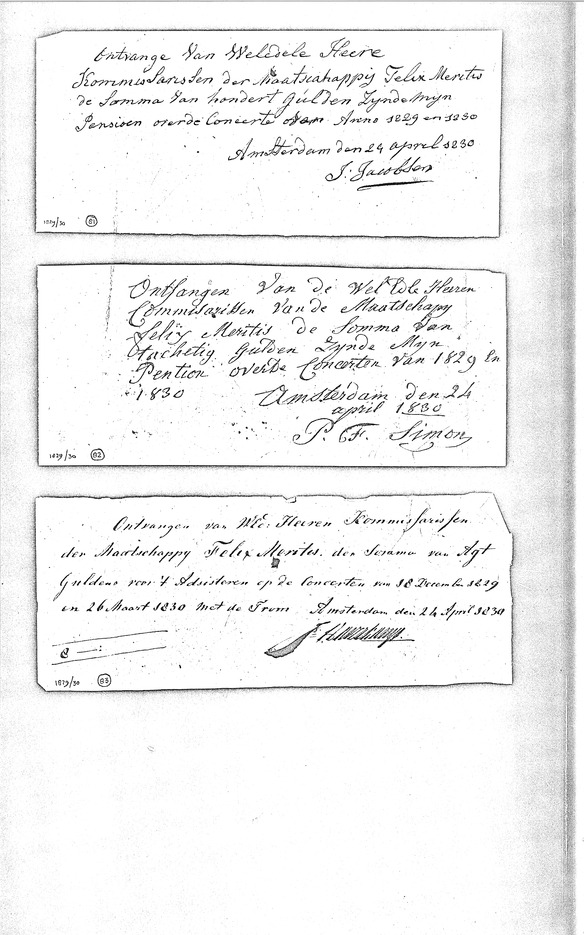 Ontvange Van Weledele Heere
Kommissarissen der Maatschappij Felix Meritis
de Somma Van hondert Gulden Zynde Myn
Pensioen overde Concerte van Anno 1829 en 1830
Amsterdam den 24 april 1830
J: Jacobsen
1829/30 81
Ontfangen Van de Wel Edle Heeren
Commisarissen Van de Maatschapy
felix Meritis de Somma Van
tachetig Gulden Zynde Myn
Pention overde Concerten van 1829 En
1830 Amsterdam den 24
april 1830
P. F. Simon
1829/30 82
Ontvangen van WE: Heeren Kommissarissen
der Maatschappy Felix Meritis. der Somma van Agt
Guldens voor 't Adsisteren op de Concerten van 18 December 1829
en 26 Maart 1830 met de Trom Amsterdam den 24 April 1830
8 —:
1829/30 83